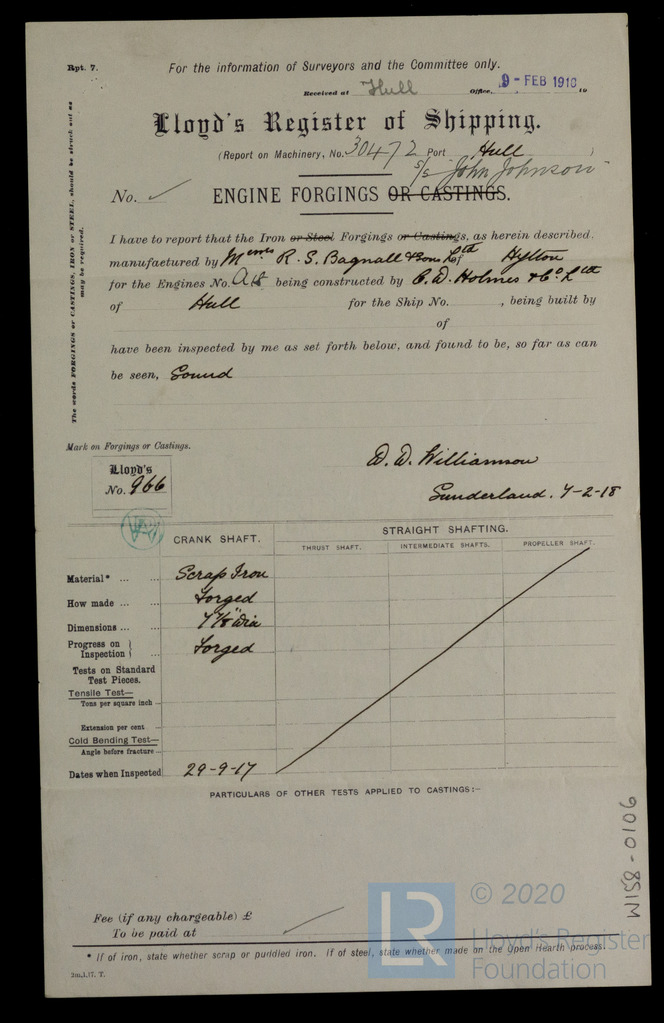 Rpt. 7.
For the information of Surveyors and the Committee only.
Received at Hull Office, 9- FEB 1918 19
Lloyd's Register of Shipping.
(Report on Machinery, No. 30472 Port Hull )
S/S "John Johnson"
No. ✓ ENGINE FORGINGS OR CASTINGS.
I have to report that the Iron or Steel Forgings or Castings, as herein described.
manufactured by Messrs R. S. Bagnall & Sons Ltd Hylton
for the Engines No. being constructed by C. D. Holmes & Co. Ltd
of Hull for the Ship No. , being built by
of
have been inspected by me as set forth below, and found to be, so far as can
be seen, Sound
The words FORGINGS or CASTINGS, IRON or STEEL, should be struck out as
may be required.
Mark on Forgings or Castings.
Lloyd's
No. 966
D. D. Williamson
Sunderland. 7-2-18
CRANK SHAFT. STRAIGHT SHAFTING.
THRUST SHAFT. INTERMEDIATE SHAFTS. PROPELLER SHAFT.
Material* ... ... Scrap Iron
How made ... ... Forged
Dimensions ... ... 7 1/8" dia
Progress on Inspection } ... Forged
Tests on Standard
Test Pieces.
Tensile Test—
Tons per square inch -
Extension per cent -
Cold Bending Test—
Angle before fracture -
Dates when Inspected 29-9-17
PARTICULARS OF OTHER TESTS APPLIED TO CASTINGS:-
M158-0106
Fee (if any chargeable) £
To be paid at
* If of iron, state whether scrap or puddled iron. If of steel, state whether made on the Open Hearth process.
2m,1.17. T.
LR
© 2020
Lloyd's Register
Foundation